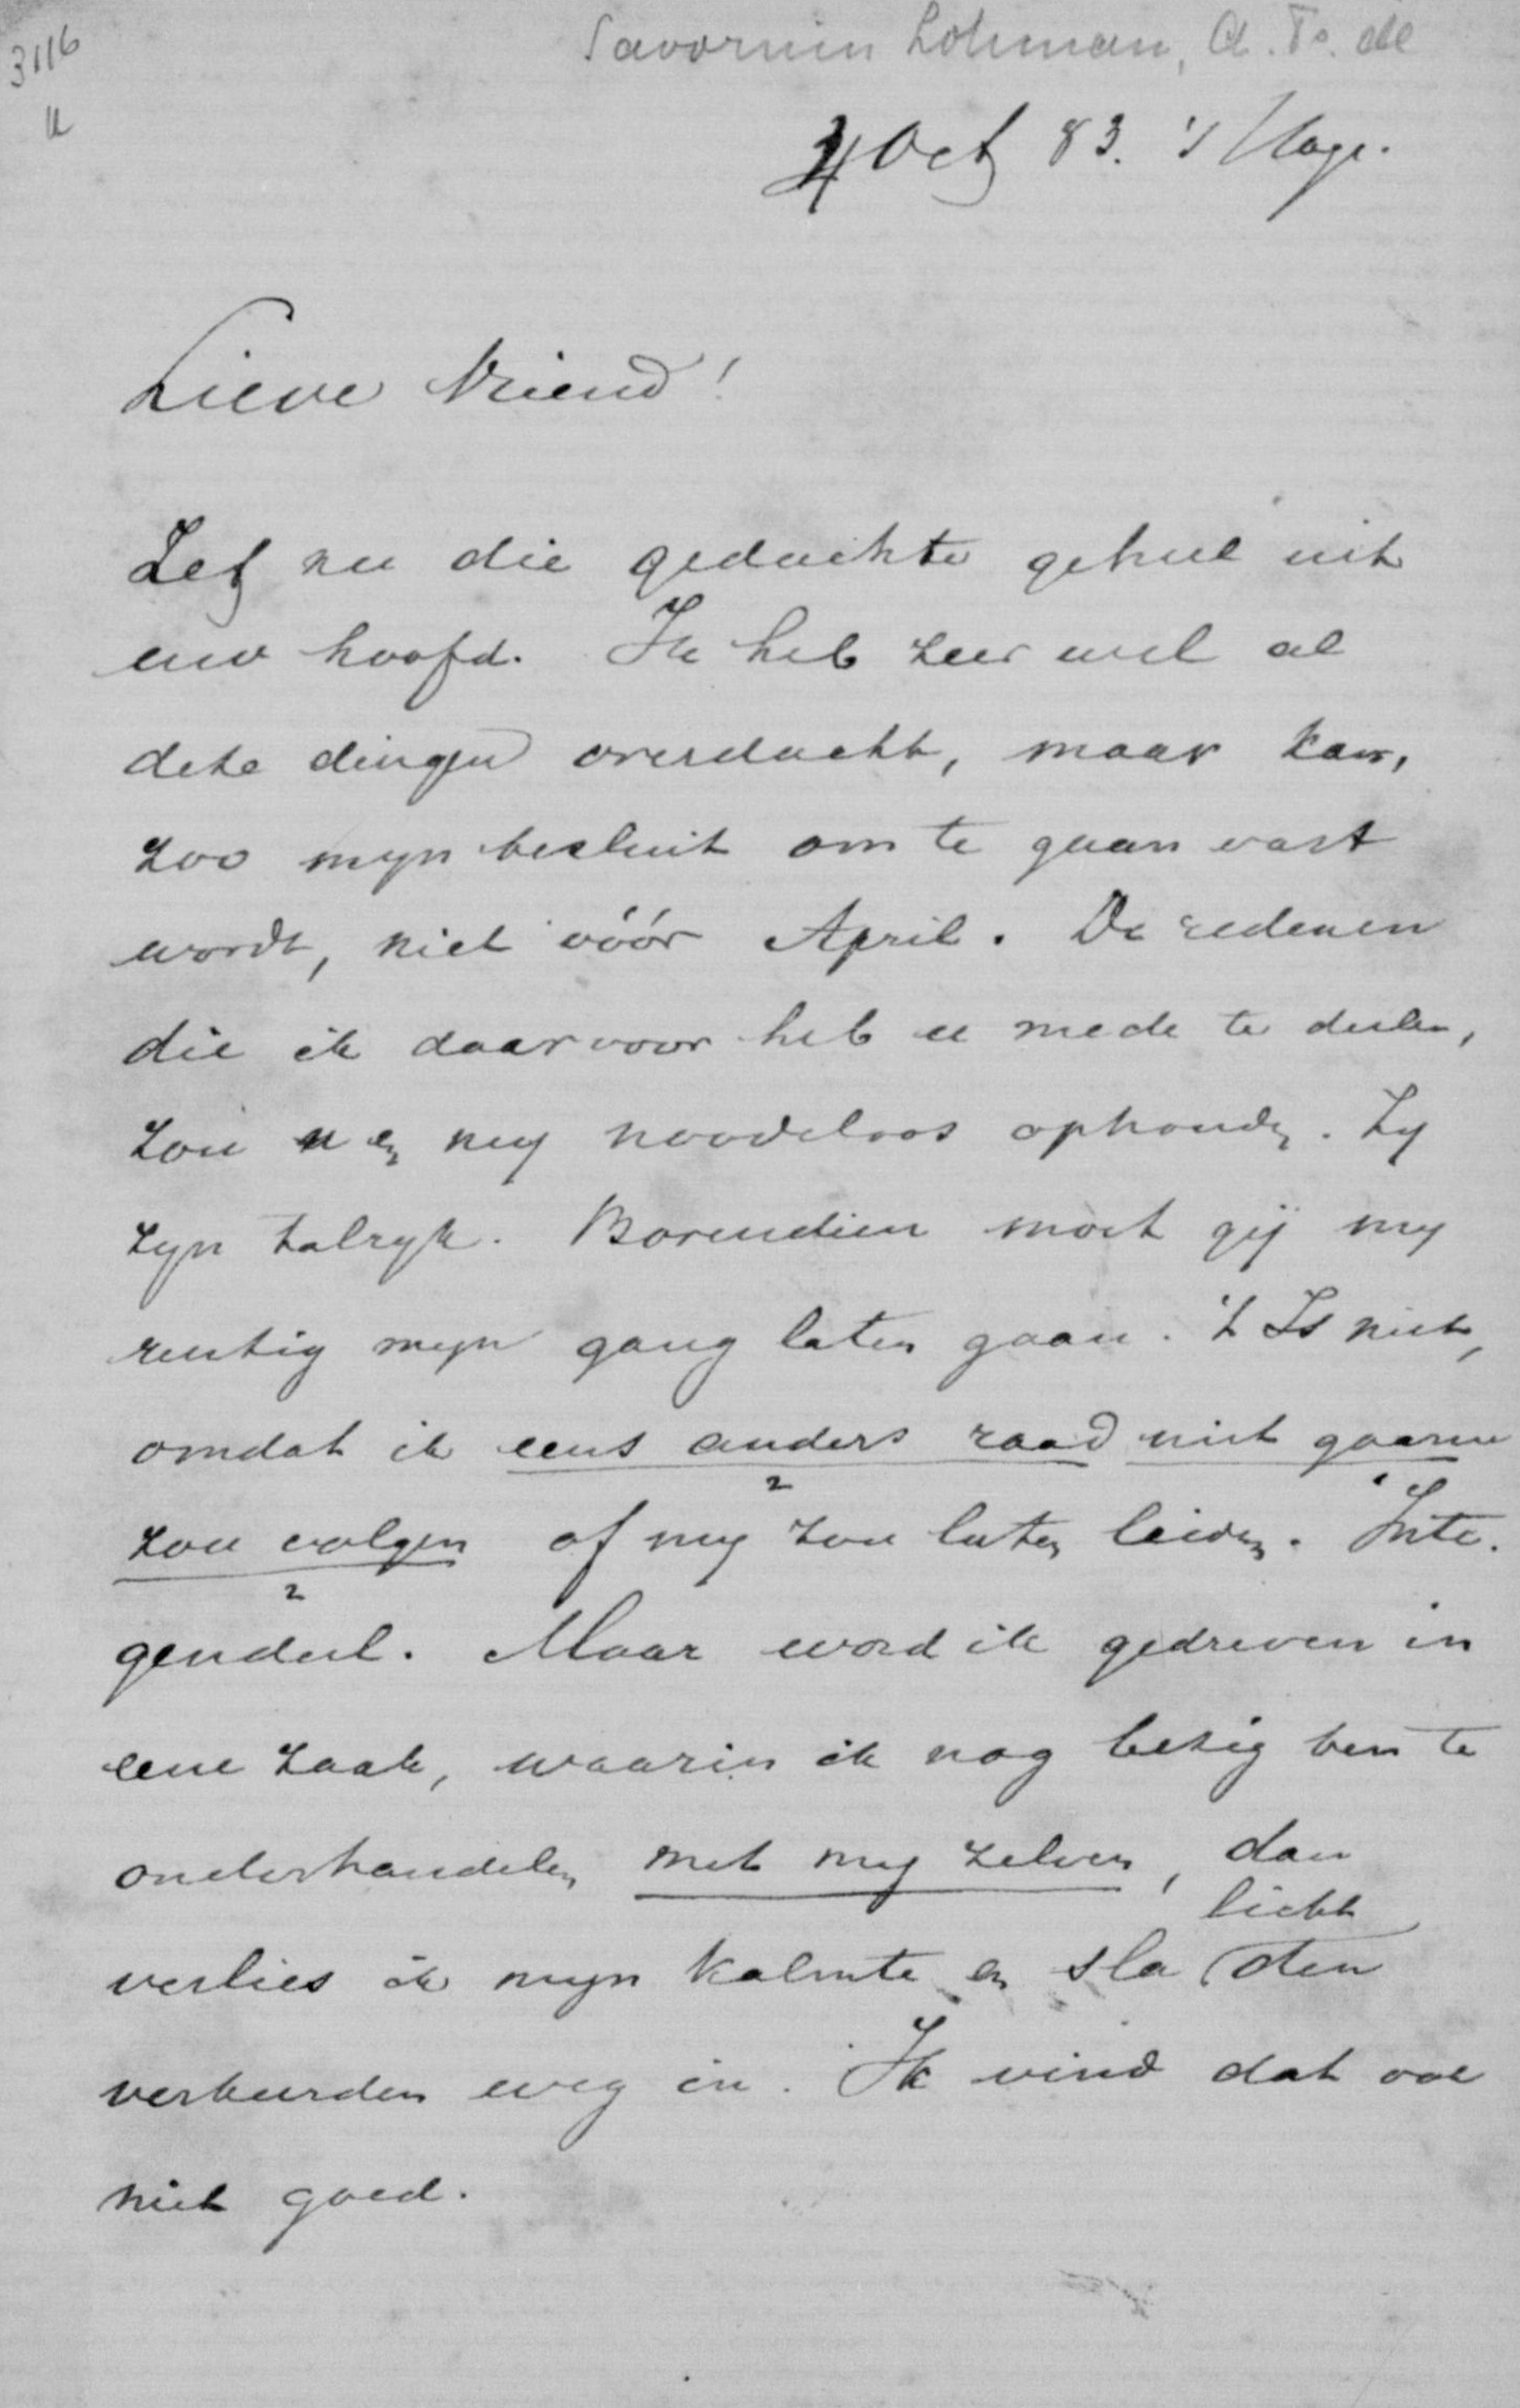 3116
Savornin Lohman, A. F. de
4 Oct 83. 's Hage.
Lieve Vriend!
Zet nu die gedachte geheel uit
uw hoofd. Ik heb zeer wel al
deze dingen overdacht, maar kan,
zoo myn besluit om te gaan vast
wordt, niet vóór April. De redenen
die ik daarvoor heb u mede te deelen,
zou u en my noodeloos ophouden. Zy
zyn talryk. Bovendien moet gij my
rustig myn gang laten gaan. 't Is niet,
omdat ik eens anders raad niet gaarne
2 1
zou volgen of my zou laten leiden. Inte-
2
gendeel. Maar word ik gedreven in
eene zaak, waarin ik nog bezig ben te
onderhandelen met my zelven, dan
licht
verlies ik myn kalmte en sla den
verkeerden weg in. Ik vind dat ook
niet goed.